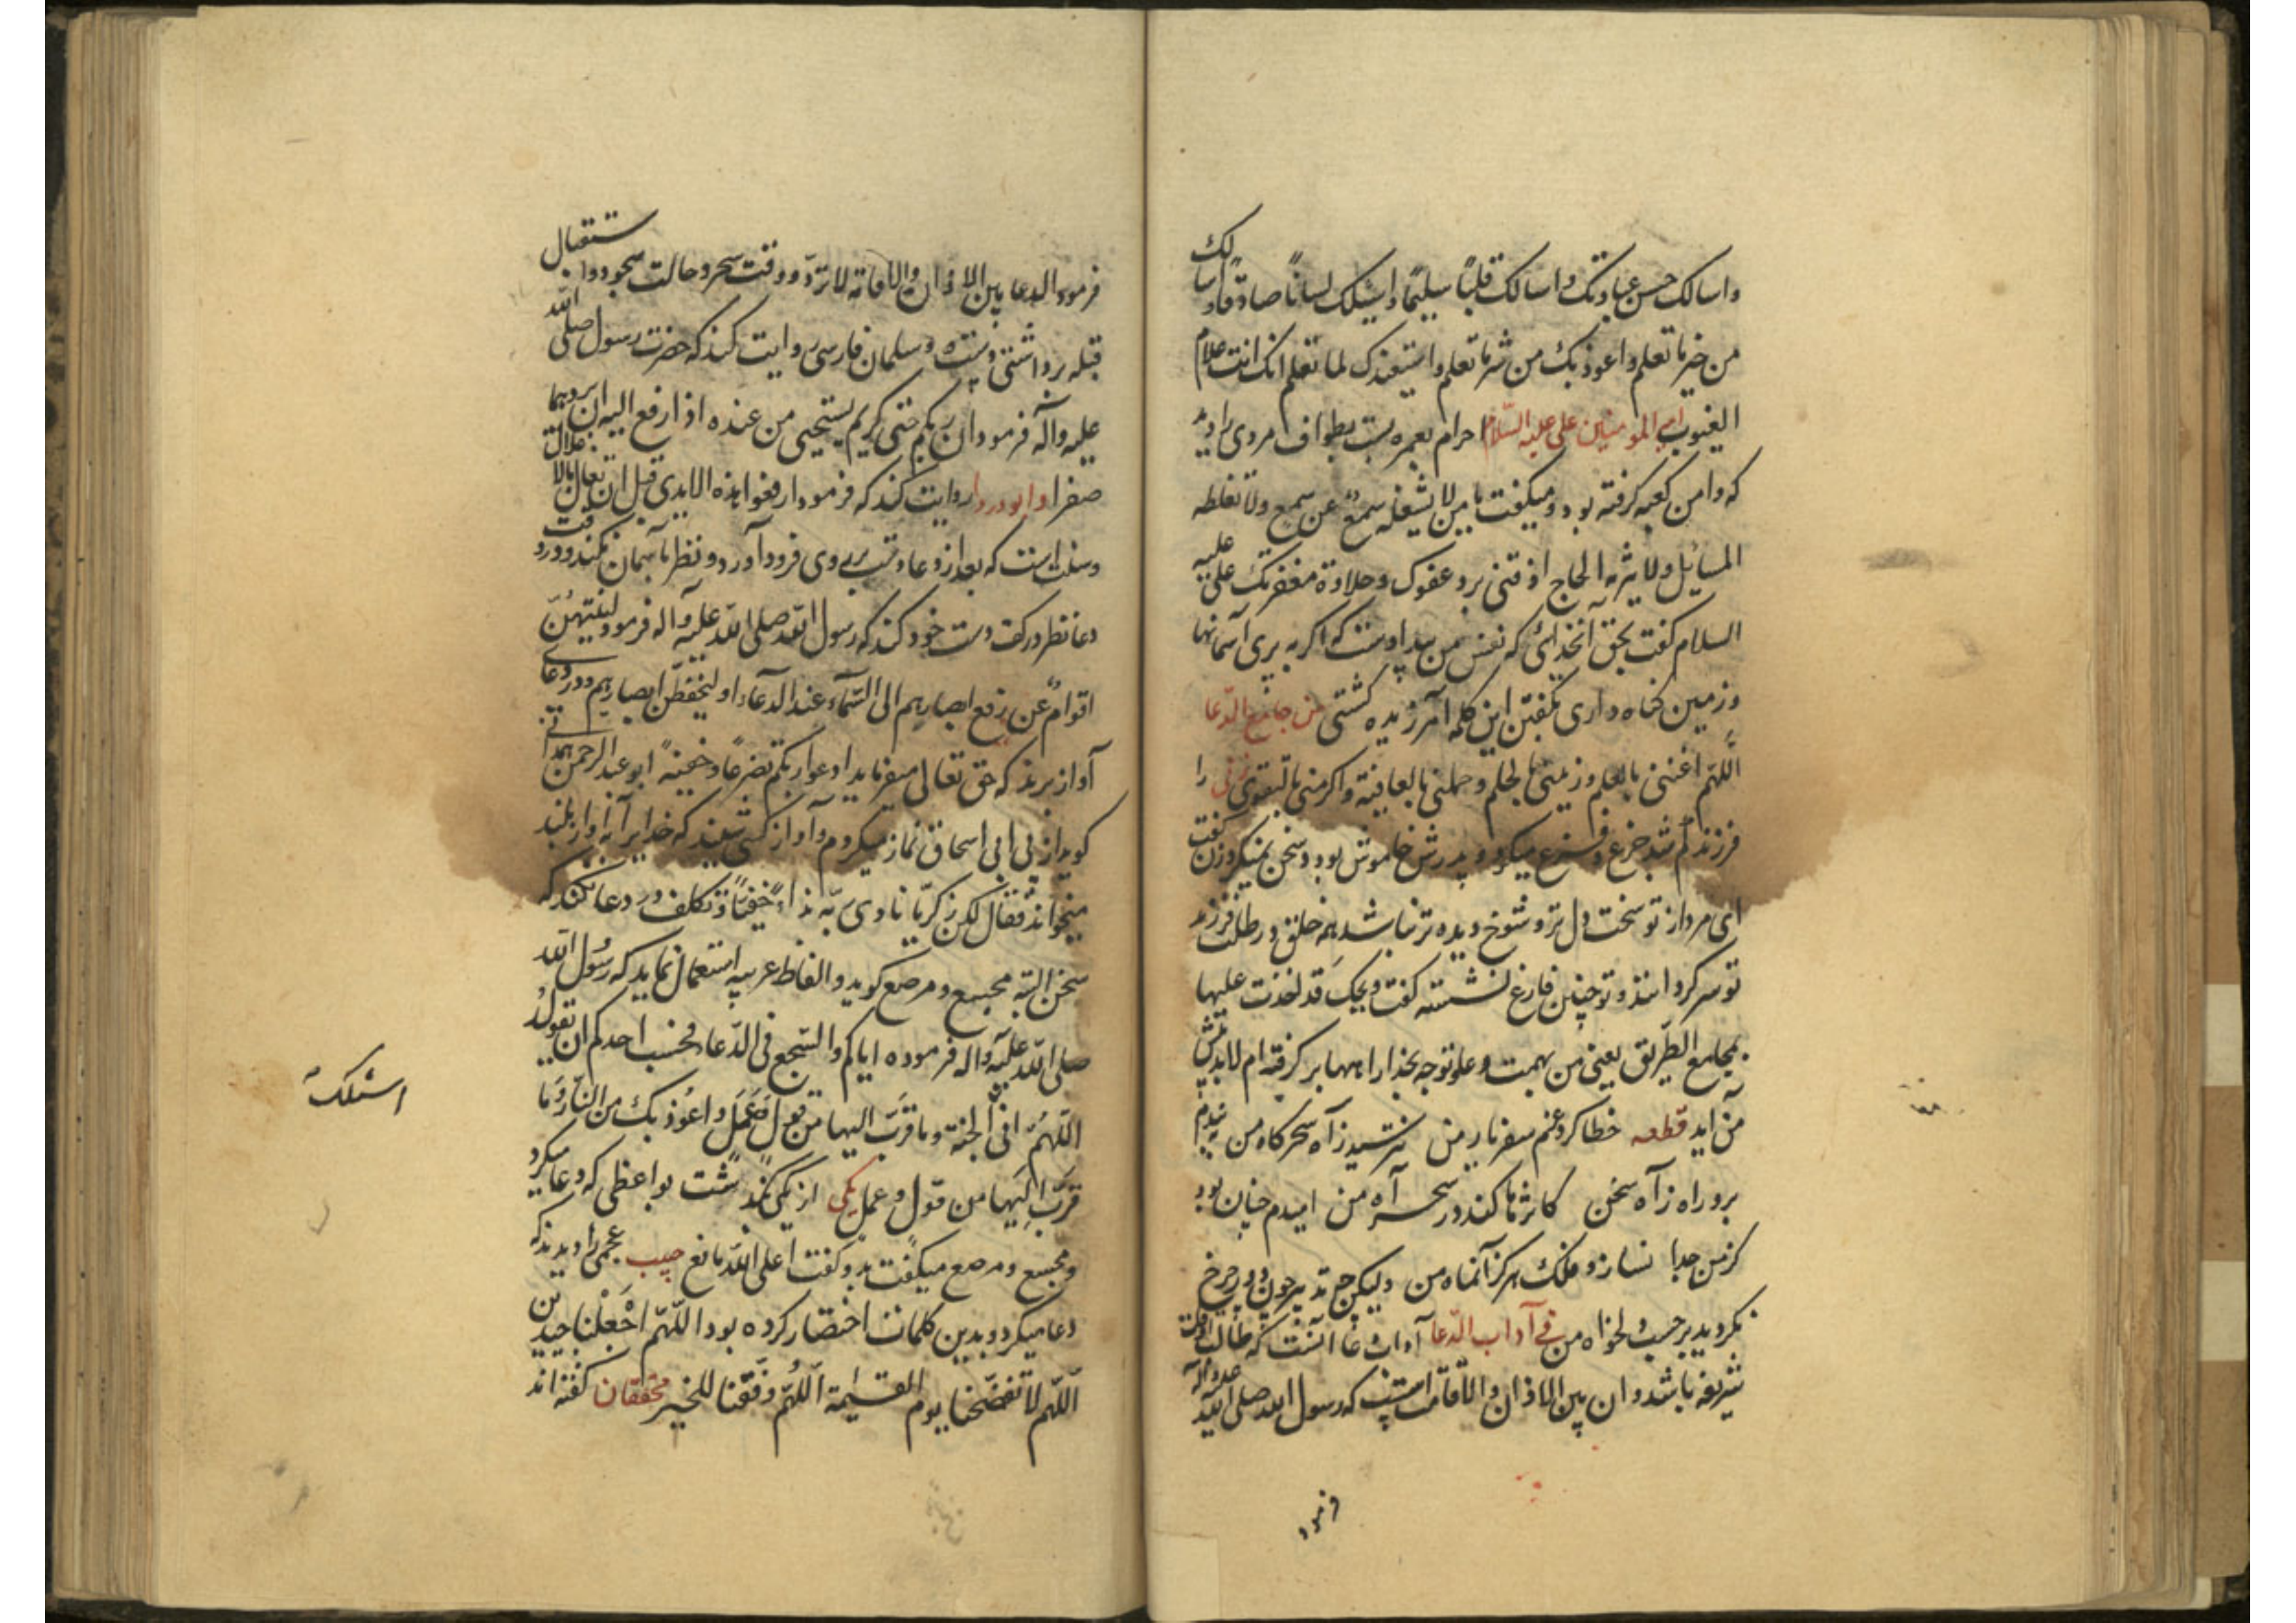 واسالک حسن عبادتک واسالک قلباً سلیماً واسئلک لساناً صادقاً واسالک
من خیر ما تعلم واعوذ بک من شر ما تعلم واستغفرک لما تعلم انک انت علام
الغیوب امیرالمومنین علی علیه السّلام احرام بعمره بست بطواف مردی را دید
که دامن کعبه گرفته بود و میگفت یا من لا یشغله سمعٌ عن سمع ولا تغلطه
المسایل ولا یبرمه الحاح اذقنی برد عفوک وحلاوة مغفرتک علی علیه
السلام گفت بحق آنخدائی که نفس من بید اوست که اگر به پری آسمانها
وزمین گناه داری بگفتن این کلمه آمرزیده گشتی من جامع الدّعا
اللّهم اغننی بالعلم وزینی بالحلم وجملنی بالعافیة واکرمنی بالتقوی زنی را
فرزند گم شد جزع و فزع میکرد و پدرش خاموش بود و سخن نمیکرد زن گفت
ای مرد از تو سخت دل تر و شوخ دیده تر نباشد همه خلق در طلب فرزند
تو سرگردانند و تو چنین فارغ نشسته گفت ویحک قد اخذت علیها
بمجامع الطّریق یعنی من بهمت و علو توجه بخدا راهها بر گرفته ام لابد پیش
من آید قطعه خطا کرد غنم سفر یار من نترسید زآه سحرگاه من ندیدم
برو راه زآه سخن کاثرها کند در سحر آه من امیدم چنان بود
کز من جدا نسازد فلک هرگز آنماه من ولیکن چه تدبیر چون دور چرخ
نگردید بر حسب دلخواه من فی آداب الدّعا آداب دعا آنست که طالب اوقات
شریفه باشد و آن بین الاذان والاقامت است که رسول الله صلی الله علیه وآله
فرمود
فرمود الدعا بین الاذان والاقامة لا تردّ و وقت سحر و حالت سجود و استقبال
قبله برداشتن دست و سلمان فارسی روایت کند که حضرت رسول صلی الله
علیه وآله فرمود ان ربکم حیی کریم یستحیی من عبده اذا رفع الیه ان یردهما
صفرا وابودردا روایت کند که فرمود ارفعوا هذه الایدی قبل ان تغل بالاغلال
وسنت است که بعد از دعا دست بر روی فرود آورد و نظر بآسمان نکند و در وقت
دعا نظر در کف دست خود کند که رسول الله صلی الله علیه وآله فرمود لینتهینّ
اقوامٌ عن رفع ابصارهم الی السّماء عند الدعآء او لیخفظنّ ابصارهم و در دعای
آواز برنه که حق تعالی میفرماید ادعوا ربکم تضرعاً وخفیة ابو عبد الرحمن همدانی
گوید از پی ابی اسحاق نماز میکردم و آواز کسی شنید که خدایرا به آواز بلند
میخواند فقال لکن زکریّا نادی ربّه نداءً خفیّاً و تکلف در دعا نکند که
سخن البته مجسع و مرصع گوید و الفاظ عربیه استعمال نماید که رسول الله
صلی الله علیه وآله فرموده ایاکم والسّجع فی الدّعاء وبحسب احدکم ان تقول
اللّهم انی الجنة وما قرّب الیها من قول وعمل واعوذ بک من النّار وما
قرّب الیها من قول وعمل یکی از یکی گذشت بواعظی که دعا میکرد
و مجسع و مرصع میگفت بدو گفت اعلی الله مانع حبیب عجمی را دیدند که
دعا میکرد و بدین کلمات اختصار کرده بود اللّهم اجعلنا جیدین
اللّهم لا تفضحنا یوم القیمة اللّهم وفّقنا للخیر محققان گفته اند
اسئلک